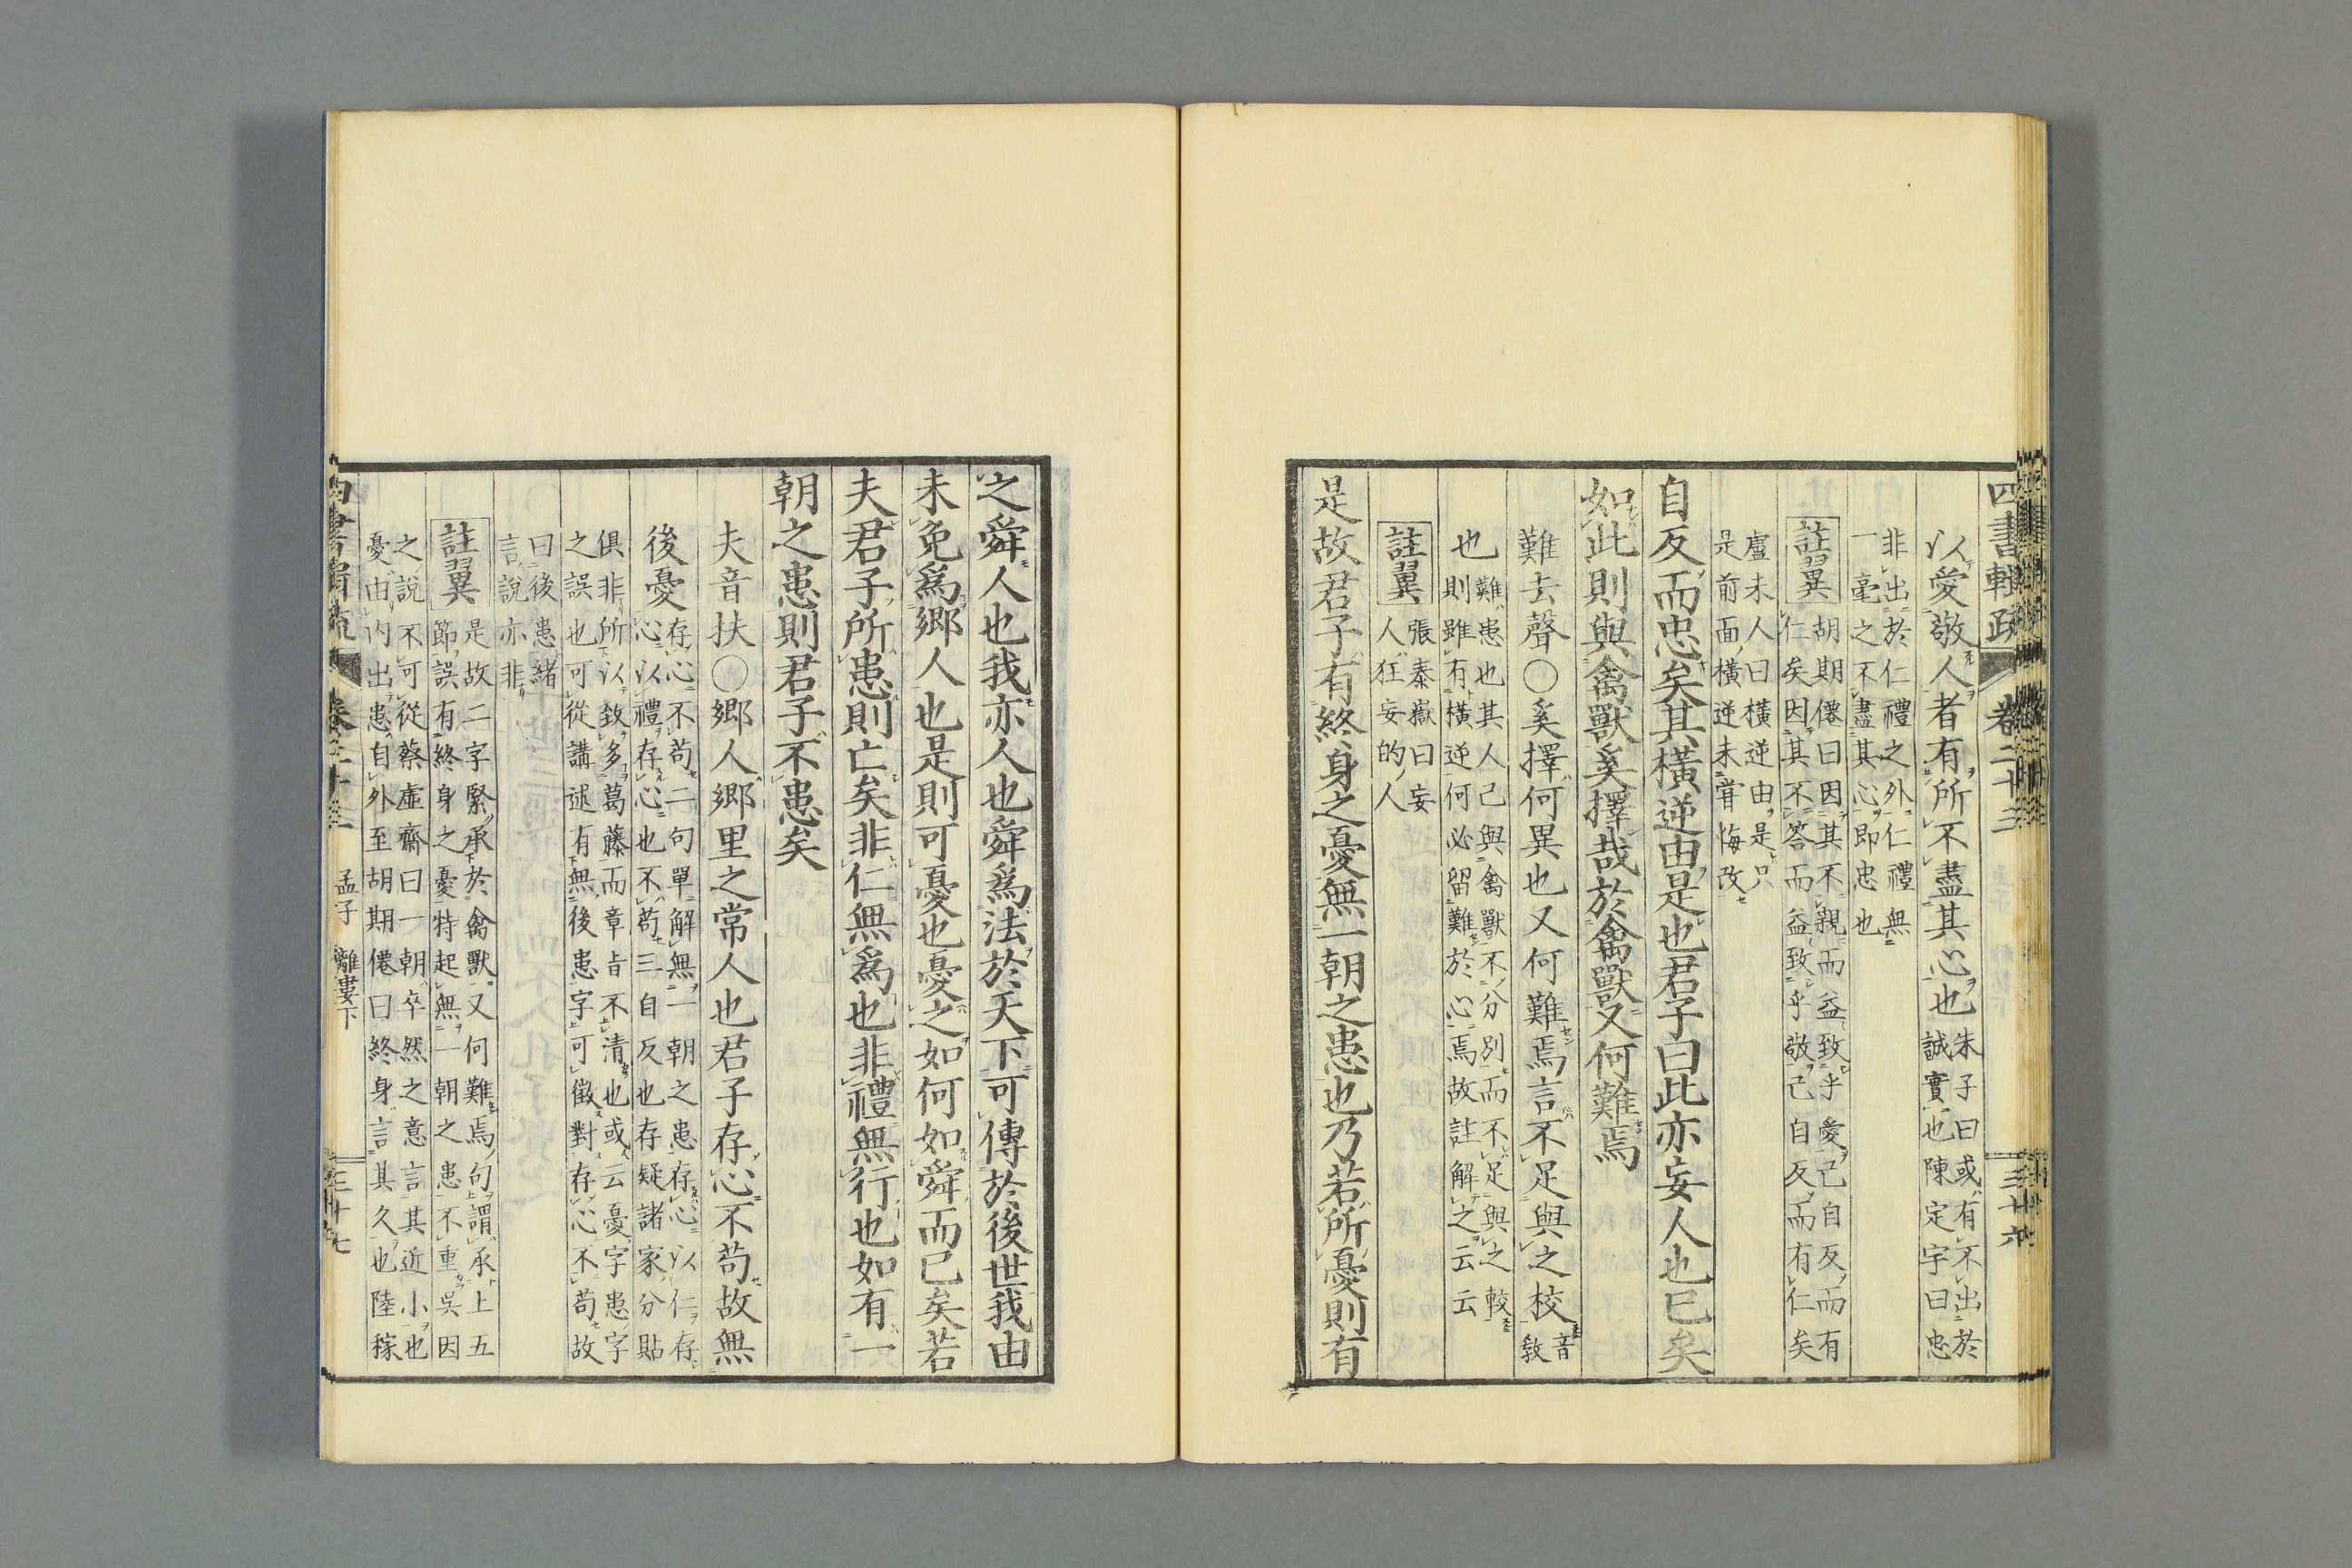 四書輯疏 卷二十三 三十六
以愛敬人者有所不盡其心也朱子曰或有不出於
誠實也陳定宇曰忠
非出於仁禮之外仁禮無
一毫之不盡其心即忠也
註翼胡期僊曰因其不親而益致乎愛己自反而有
仁矣因其不答而益致乎敬己自反而有仁矣
盧未人曰橫逆由是只
是前面橫逆未甞悔改
自反而忠矣其橫逆由是也君子曰此亦妄人也已矣
如此則與禽獸奚擇哉於禽獸又何難焉
難去聲○奚擇何異也又何難焉言不足與之校音
教
也難患也其人己與禽獸不分別而不足與之較
則雖有橫逆何必留難於心焉故註解之云云
註翼張秦嶽曰妄
人狂妄的人
是故君子有終身之憂無一朝之患也乃若所憂則有
之舜人也我亦人也舜爲法於天下可傳於後世我由
未免爲鄉人也是則可憂也憂之如何如舜而已矣若
夫君子所患則亡矣非仁無爲也非禮無行也如有一
朝之患則君子不患矣
夫音扶○鄉人鄉里之常人也君子存心不苟故無
後憂存心不苟二句單解無一朝之患存心以仁存
心以禮存心也不苟三自反也存疑諸家分貼
俱非所以致多葛藤而章旨不清也或云憂字患字
之誤也可從講述有無後患字可徵對存心不苟故
曰後患緒
言說亦非
註翼是故二字緊承於禽獸又何難焉句謂承上五
節誤有終身之憂特起無一朝之患不重吳因
之說不可從蔡虛齋曰一朝卒然之意言其近小也
憂由內出患自外至胡期僊曰終身言其久也陸稼
四書輯疏 卷二十三 孟子 離婁下 三十七